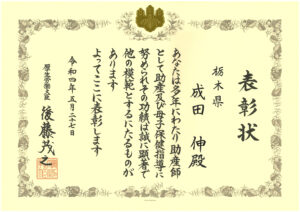 表彰状
栃木県
成田 伸殿
あなたは多年にわたり助産師
として助産及び母子保健指導に
努められその功績は誠に顕著で
他の模範とするにたるものが
あります
よってここに表彰します
令和四年五月二十七日
厚生労働大臣 後藤茂之